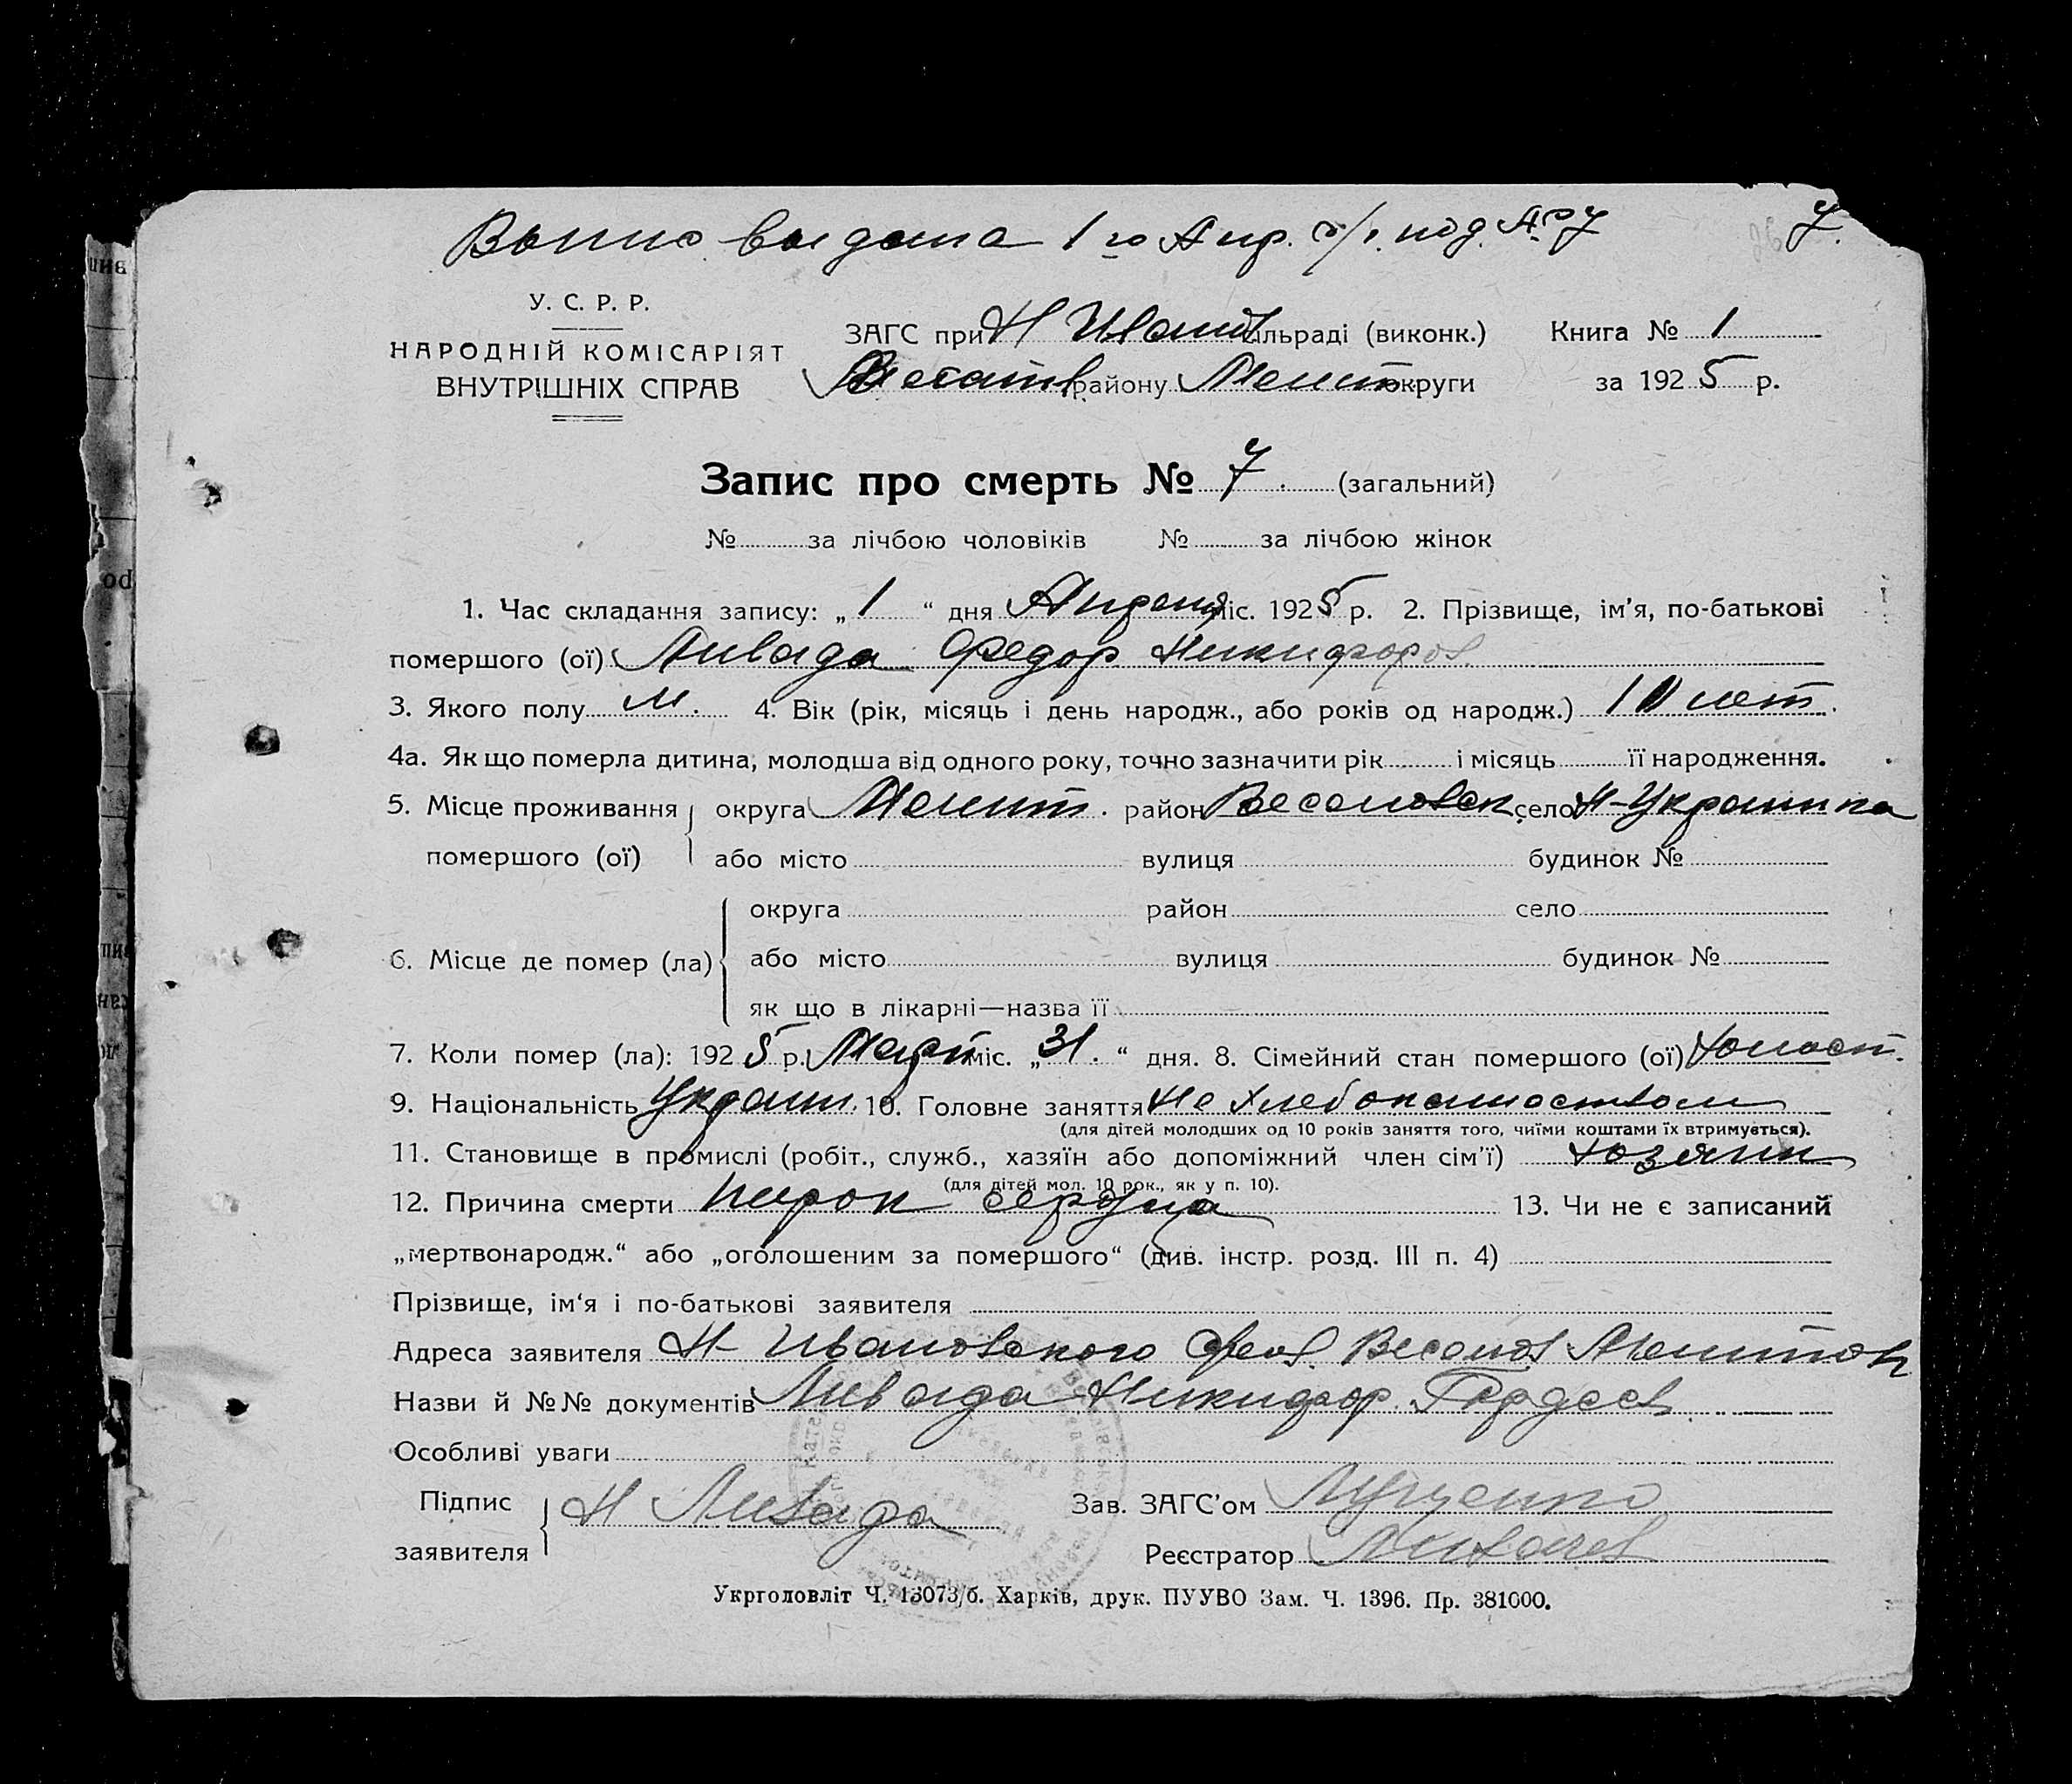 Выпис выдана 1го Апр. с/г. под. № 7 7.
У. С. Р. Р.
НАРОДНІЙ КОМІСАРІЯТ
ВНУТРІШНІХ СПРАВ
ЗАГС при Н Иван сільраді (виконк.) Книга № 1
району Мелит округи за 1925 р.
Запис про смерть № 7. (загальний)
№ за лічбою чоловіків № за лічбою жінок
1. Час складання запису: „1“ дня Апреля міс. 1925 р. 2. Прізвище, ім'я, по-батькові
помершого (ої) Ливада Федор Никифоров
3. Якого полу м. 4. Вік (рік, місяць і день народж., або років од народж.) лет.
4а. Як що померла дитина, молодша від одного року, точно зазначити рік і місяць її народження.
5. Місце проживання округа Мелит. район Веселовск село Н-Украинка
помершого (ої) або місто вулиця будинок №
округа район село
6. Місце де помер (ла) або місто вулиця будинок №
як що в лікарні—назва її
7. Коли помер (ла): 1925 р. Март міс. „31.“ дня. 8. Сімейний стан помершого (ої) холост.
9. Національність Украин. 10. Головне заняття Не хлебопашеством
(для дітей молодших од 10 років заняття того, чиїми коштами їх втримується).
11. Становище в промислі (робіт., служб., хазяїн або допоміжний член сім'ї) хозяин
(для дітей мол. 10 рок., як у п. 10).
12. Причина смерти порок сердца 13. Чи не є записаний
„мертвонародж.“ або „оголошеним за помершого“ (див. інстр. розд. III п. 4)
Прізвище, ім'я і по-батькові заявителя
Адреса заявителя Н- Ивановского Весолов Мелитоп
Назви й №№ документів Ливада Никифор Гордеев
Особливі уваги
Підпис
заявителя Н Ливада
Зав. ЗАГС'ом Луценко
Реєстратор
Укрголовліт Ч. 13073/б. Харків, друк. ПУУВО Зам. Ч. 1396. Пр. 381000.